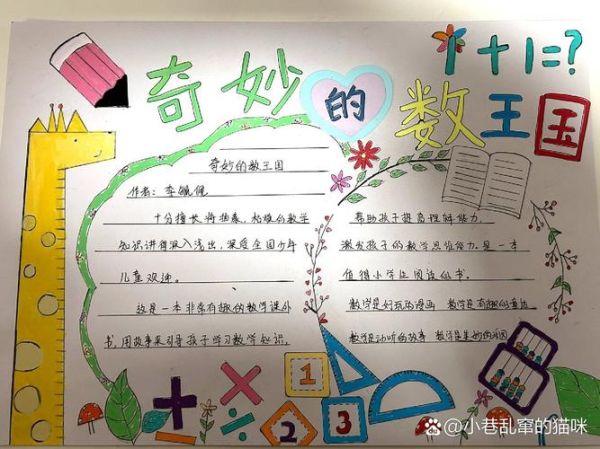 1+1=?
奇妙的数王国
奇妙的数王国
作者：李毓佩
十分擅长将抽象、枯燥的数学
知识讲得深入浅出，深受全国少年
儿童欢迎。
这是一本非常有趣的数学课外
书，用故事来引导孩子学习数学知识，
帮助孩子提高理解能力，
激发孩子的数学思维能力。是一本
值得小学生阅读的书。
数学是好玩的漫画 数学是有趣的童话
数学是动听的故事 数学是美妙的
1
2
3
@小巷乱窜的猫咪